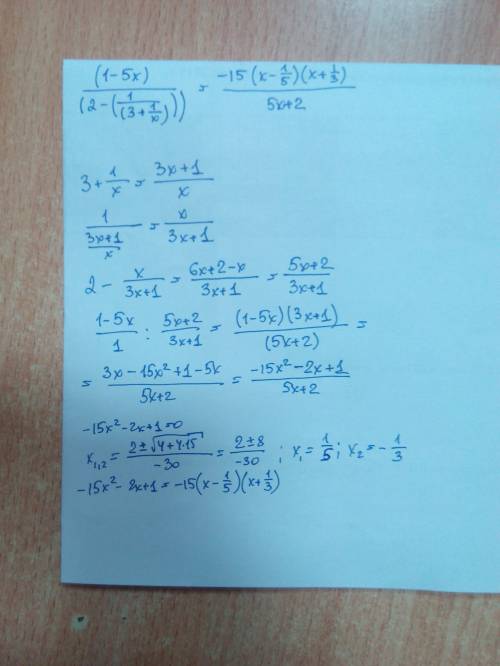 (1-5x)/(2-(1/(3+1/x))) = -15(x-1/5)(x+1/3)/5x+2
3+1/x = 3x+1/x
1/(3x+1/x) = x/3x+1
2 - x/3x+1 = 6x+2-x/3x+1 = 5x+2/3x+1
1-5x/1 : 5x+2/3x+1 = (1-5x)(3x+1)/(5x+2) =
= 3x-15x²+1-5x/5x+2 = -15x²-2x+1/5x+2
-15x²-2x+1=0
x₁,₂ = 2±√4+4·15/-30 = 2±8/-30 ; x₁=1/5; x₂=-1/3
-15x²-2x+1=-15(x-1/5)(x+1/3)